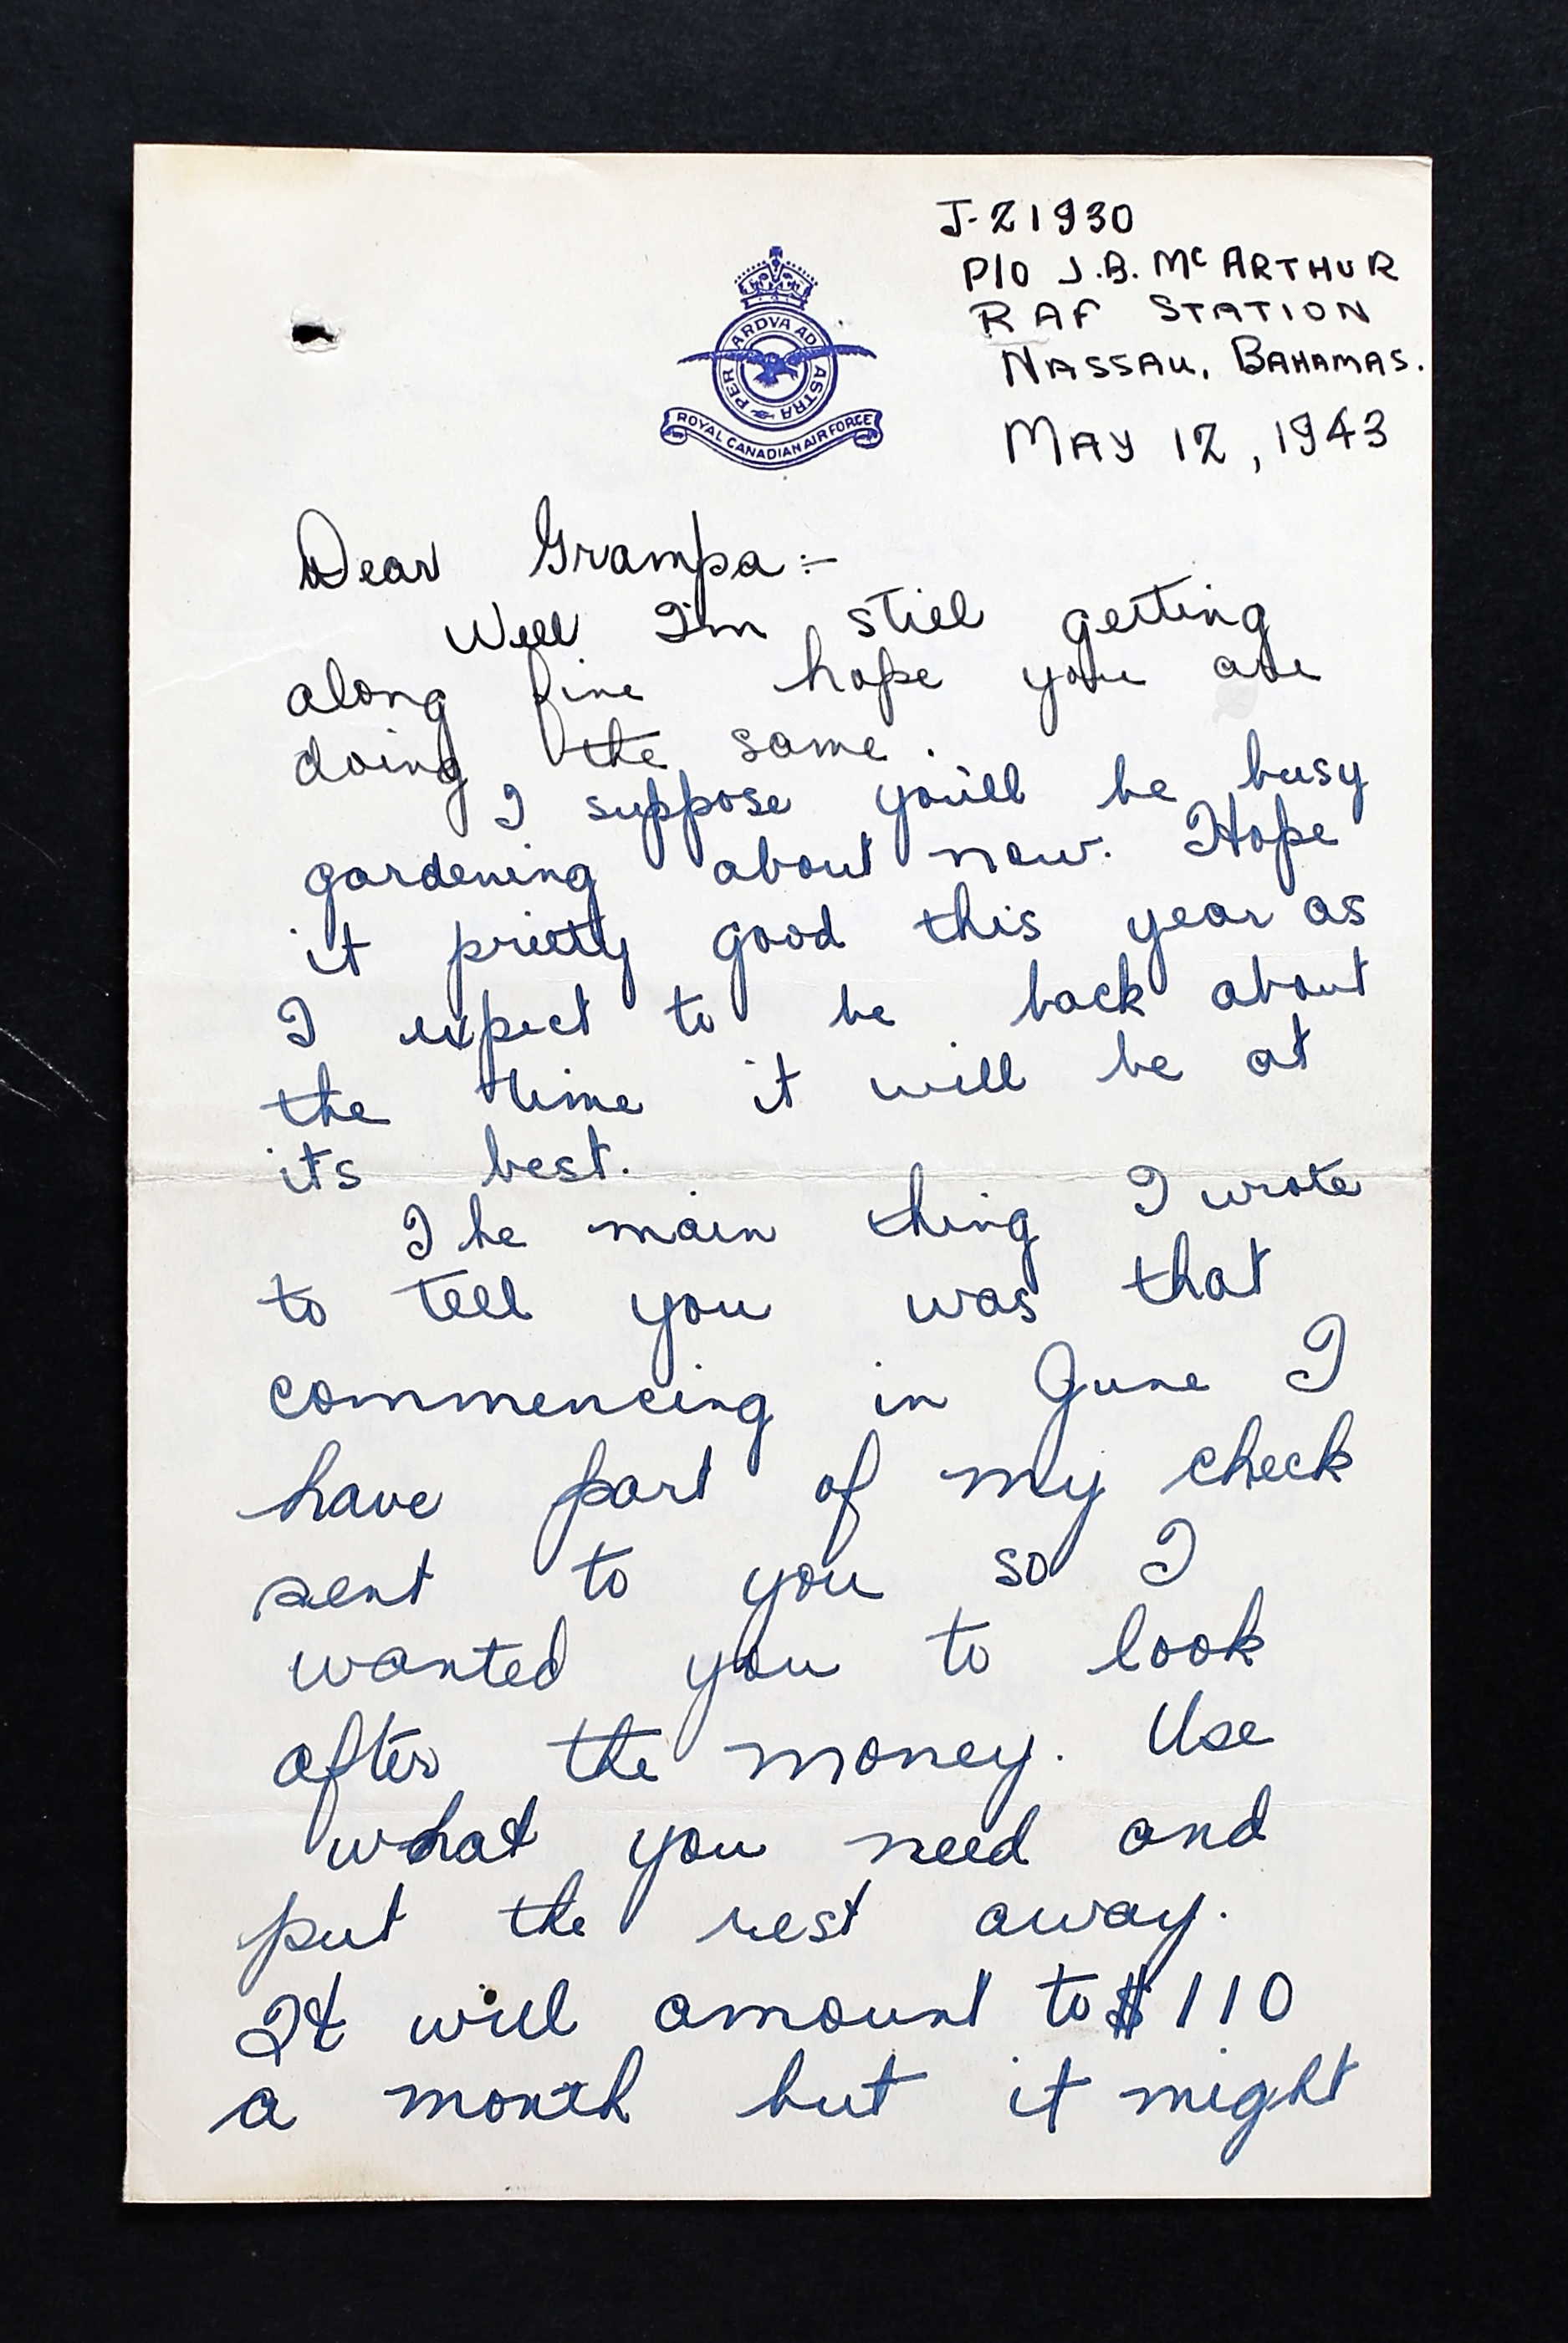 J-21930
P/O J.B. McARTHUR
RAF STATION
NASSAU, BAHAMAS.
MAY 12, 1943
PER ARDVA AD ASTRA
ROYAL CANADIAN AIR FORCE
Dear Grampa:-
Well I'm still getting
along fine hope you are
doing the same.
I suppose you'll be busy
gardening about now. Hope
it pretty good this year as
I expect to be back about
the time it will be at
its best.
The main thing I wrote
to tell you was that
commencing in June I
have part of my check
sent to you so I
wanted you to look
after the money. Use
what you need and
put the rest away.
It will amount to $110
a month but it might